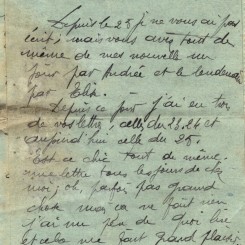 Depuis le 25 je ne vous ai pas
écrit, mais vous avez tout de
même de mes nouvelle un
jour par Andrée et le lendemain
par
Depuis ce jour j'ai eu trois
de vos lettre, celles du 23, 24 et
aujourd'hui celle du 25.
Est ce chic tout de même.
une lettre tous les jours de chez
moi, oh, parfois pas grand
chose mais ça ne fait rien
j'ai un peu de quoi lire
et cela me fait grand plaisir